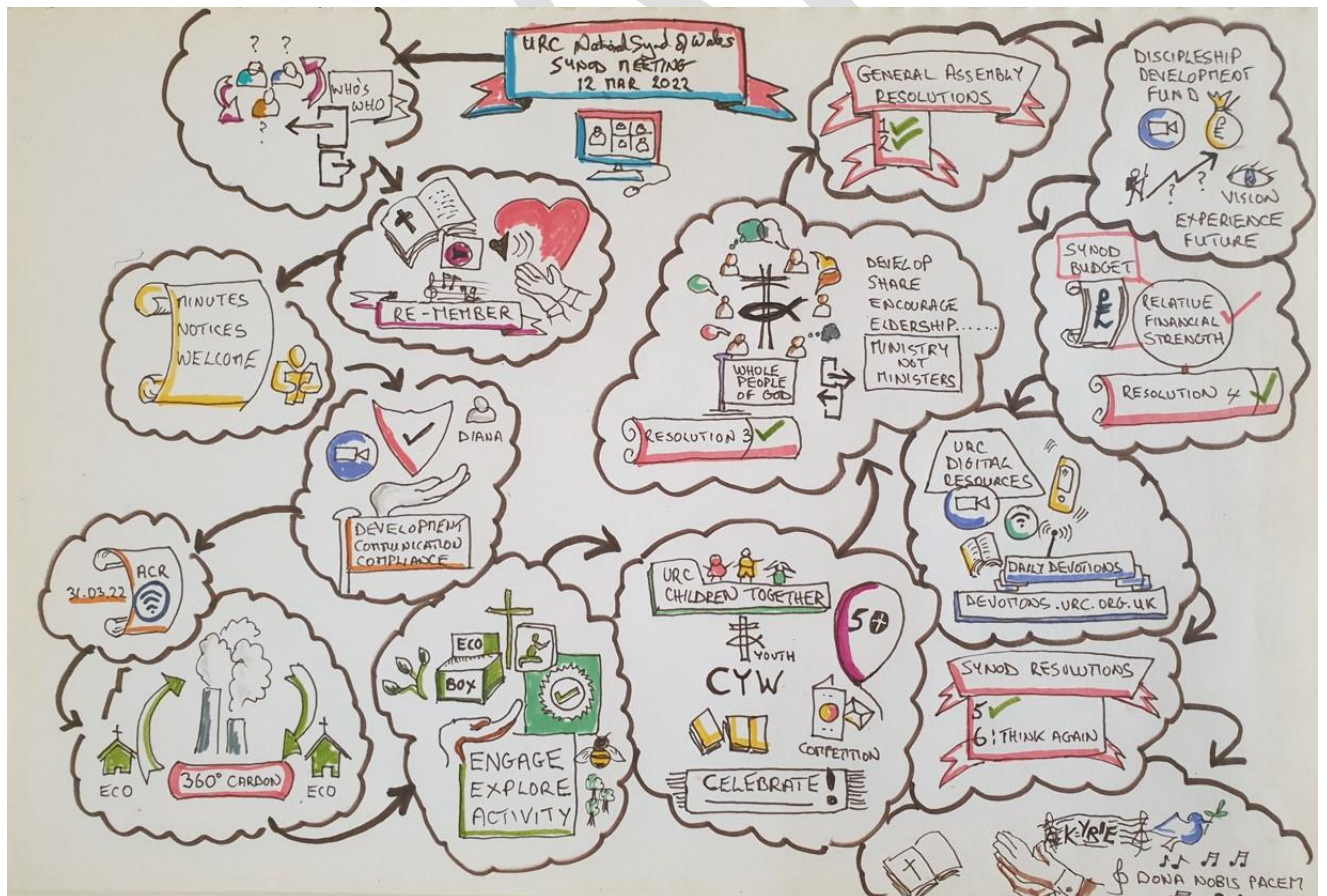 URC National Synod of Wales
SYNOD MEETING
12 MAR 2022
? ?
?
WHO'S
WHO
RE-MEMBER
MINUTES
NOTICES
WELCOME
DIANA
DEVELOPMENT
COMMUNICATION
COMPLIANCE
31.03.22
ACR
360° CARBON
ECO
ECO
ECO
BOX
ENGAGE
EXPLORE
ACTIVITY
URC
CHILDREN TOGETHER
50
YOUTH
CYW
COMPETITION
CELEBRATE!
DEVELOP
SHARE
ENCOURAGE
ELDERSHIP......
MINISTRY
NOT
MINISTERS
WHOLE
PEOPLE
OF GOD
RESOLUTION 3
GENERAL ASSEMBLY
RESOLUTIONS
1
2
DISCIPLESHIP
DEVELOPMENT
FUND
£
? ?
VISION
EXPERIENCE
FUTURE
SYNOD
BUDGET
RELATIVE
FINANCIAL
STRENGTH
RESOLUTION 4
URC
DIGITAL
RESOURCES
DAILY DEVOTIONS
DEVOTIONS.URC.ORG.UK
SYNOD RESOLUTIONS
5
6: THINK AGAIN
KYRIE
DONA NOBIS PACEM